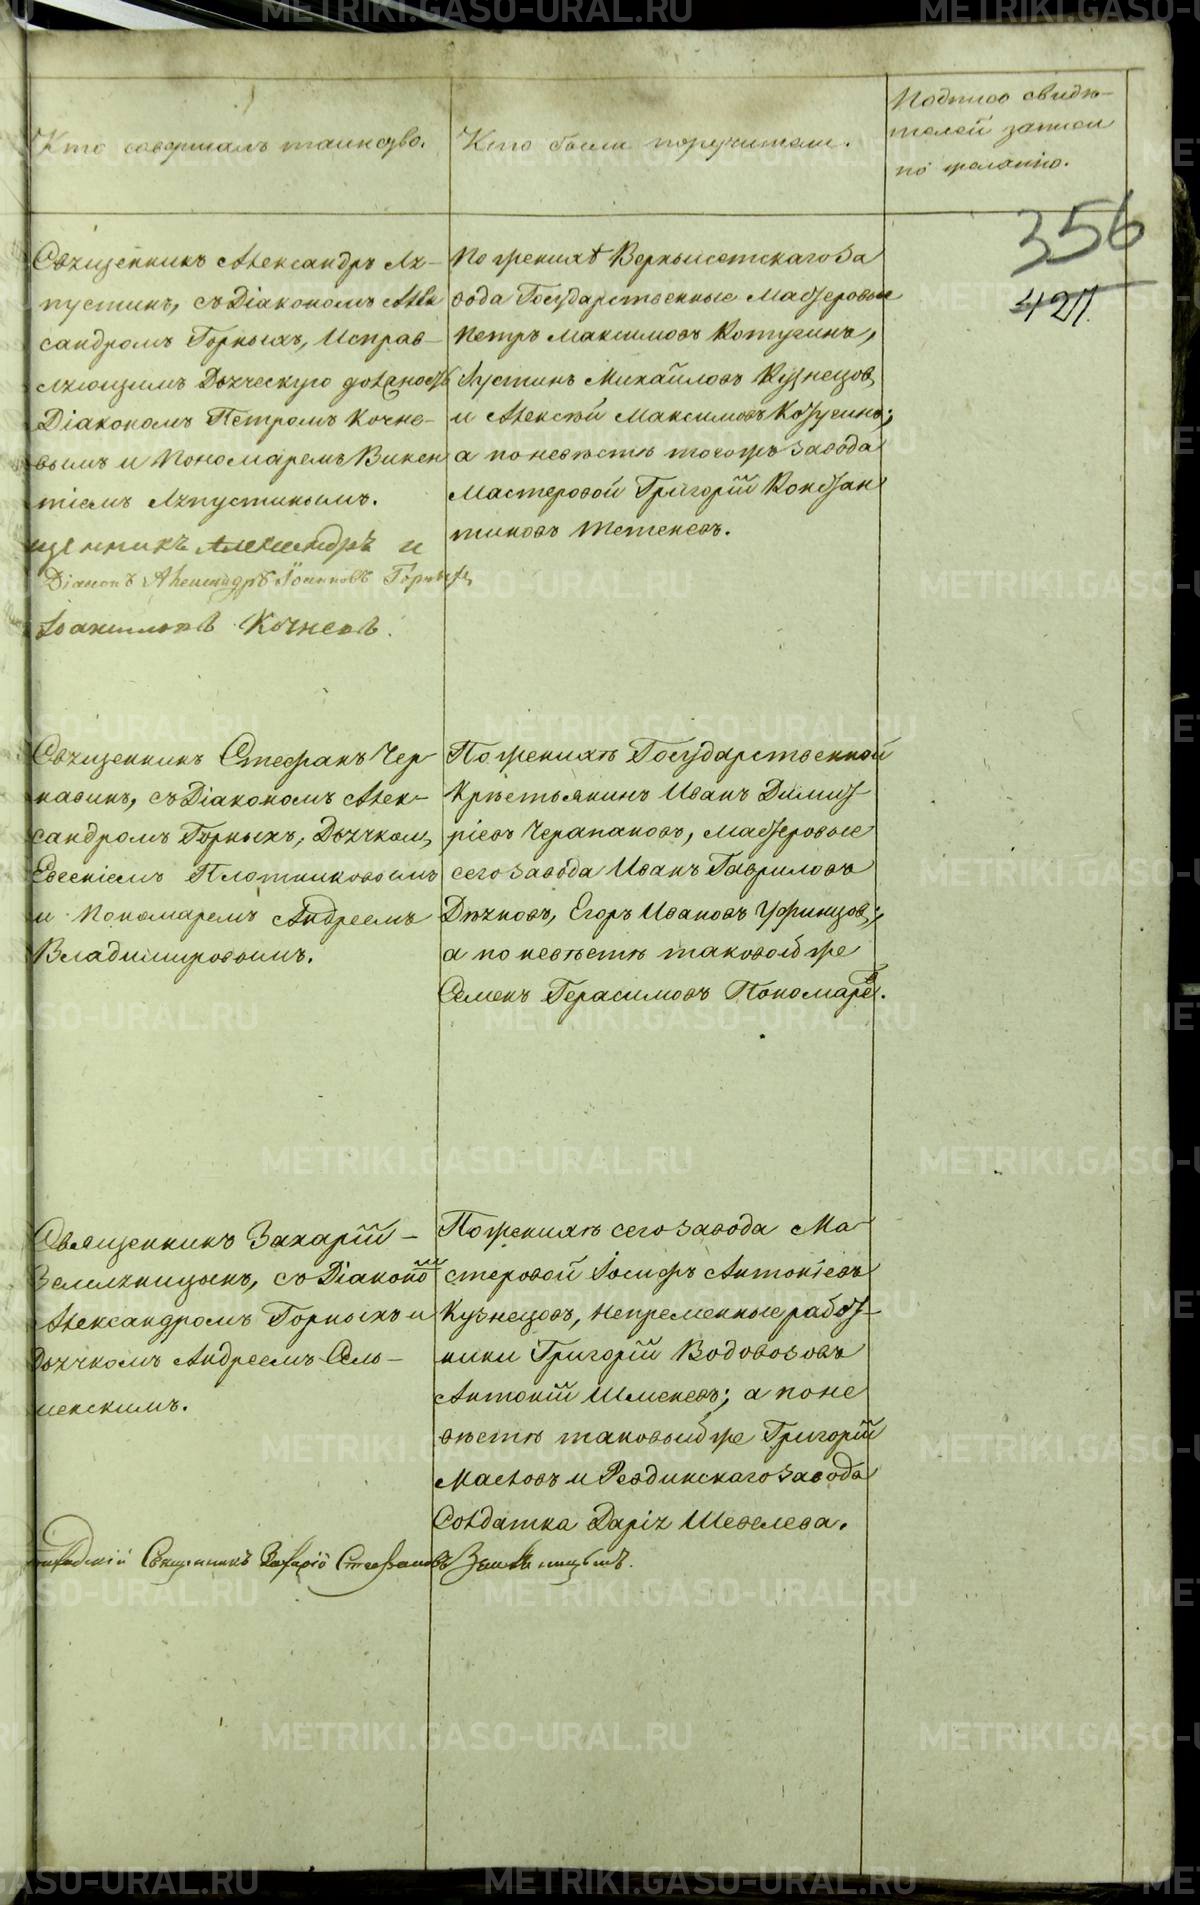 Кто совершалъ таинство.
Кто были поручители.
Подпись свидѣ-
телей записи
по желанію.
356
421.
Священникъ Александръ Ля-
пустинъ, съ Діакономъ Алек
сандромъ Горныхъ, Исправ-
ляющимъ Дьяческую должность
Діакономъ Петромъ Кочне-
вымъ и Пономаремъ Викен
тіемъ Ляпустинымъ.
щенникъ Александръ и
Діаконъ Александръ Іоанновъ Горныхъ
Кочневъ.
По женихѣ Верхъисетскаго За
вода Государственные Мастеровые
Петръ Максимовъ Котугинъ,
Іустинъ Михайловъ Кузнецовъ
и Алексѣй Максимовъ Котугинъ;
а по невѣстѣ тогожъ завода
Мастеровой Григорій Констан
тиновъ Тетеневъ.
Священникъ Стефанъ Чер
навинъ, съ Діакономъ Алек-
сандромъ Горныхъ, Дьячкомъ
Евсевіемъ Плотниковымъ
и Пономаремъ Андреемъ
Владимировымъ.
По женихѣ Государственной
Крѣстьянинъ Иванъ Димит
ріевъ Черапановъ, Мастеровые
сего завода Иванъ Гавриловъ
Дьячковъ, Егоръ Ивановъ Уфинцовъ;
а по невѣстѣ таковой же
Семенъ Герасимовъ Пономаревъ.
Священникъ Захарій
Земляницынъ, съ Діакономъ
Александромъ Горныхъ и
Дьячкомъ Андреемъ Сель-
менскимъ.
По женихѣ сего завода Ма-
стеровой Іосифъ Антоніевъ
Кузнецовъ, Непременные работ
ники Григорій Водовозовъ
Антоній Шменевъ; а по не
вѣстѣ таковый же Григорій
Масловъ и Ревдинскаго завода
Солдатка Дарія Шевелева.
Священникъ Захарій Стефановъ Земляницынъ.
METRIKI.GASO-URAL.RU